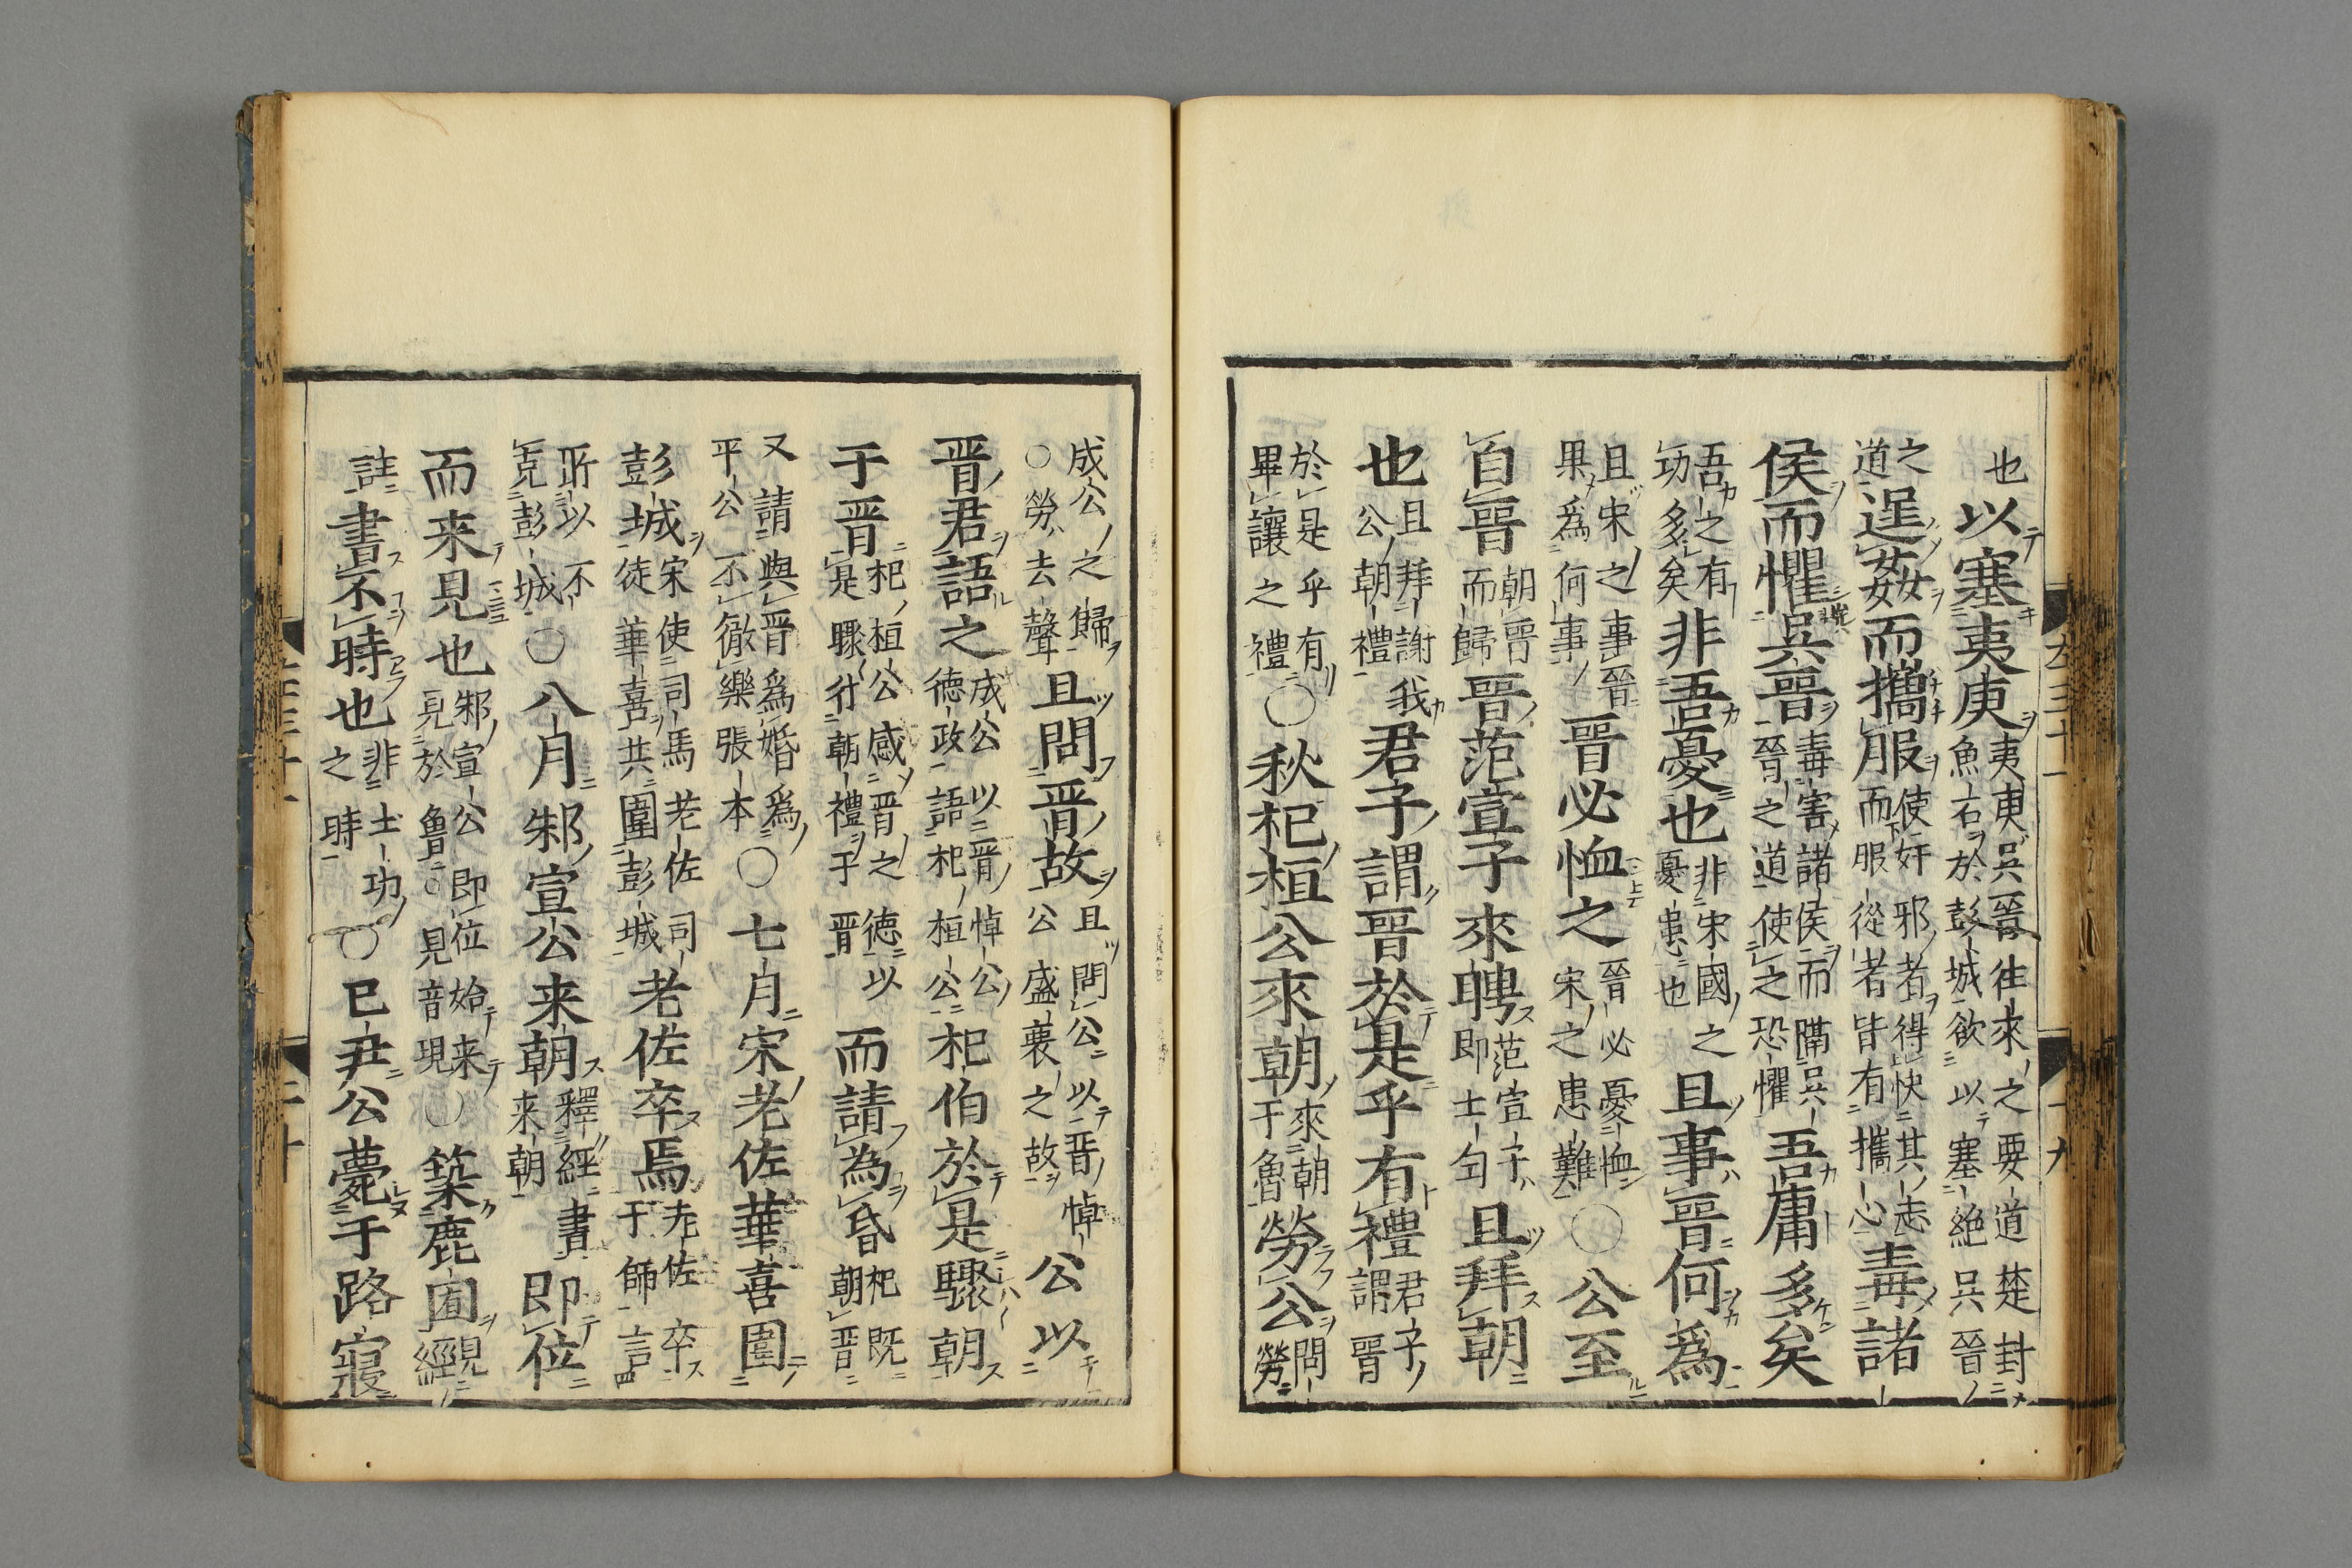 也以塞夷庚夷庚呉晉往來之要道楚封魚石於彭城欲以塞絶呉晉
之道逞姦而攜服使奸邪者得快其志而服從者皆有攜心毒諸
侯而懼呉晉毒害諸侯而隔呉晉之道使之恐懼吾庸多矣
吾之有功多矣非吾憂也非宋國之憂患也且事晉何爲
且宋之事晉果爲何事晉必恤之晉必憂恤宋之患難○公至
自晉朝晉而歸晉范宣子來聘范宣子即士匄且拜朝
也且拜謝我公朝禮君子謂晉於是乎有禮君子謂晉
於是乎有畢讓之禮○秋杞桓公來朝來朝于魯勞公問勞
成公之歸○勞去聲且問晉故且問公以晉悼公盛衰之故公以
晉君語之成公以晉悼公德政語杞桓公杞伯於是驟朝
于晉杞桓公感晉之德以是驟行朝禮于晉而請為昏杞既朝晉
又請與晉爲婚爲平公不徹樂張本○七月宋老佐華喜圍
彭城宋使司馬老佐司徒華喜共圍彭城老佐卒焉老佐卒于師言
所以不克彭城○八月邾宣公来朝釋經書来朝即位
而来見也邾宣公即位始来見於魯○見音現○築鹿囿見經
註書不時也非土功之時○己丑公薨于路寢
左三十一
十九
二十